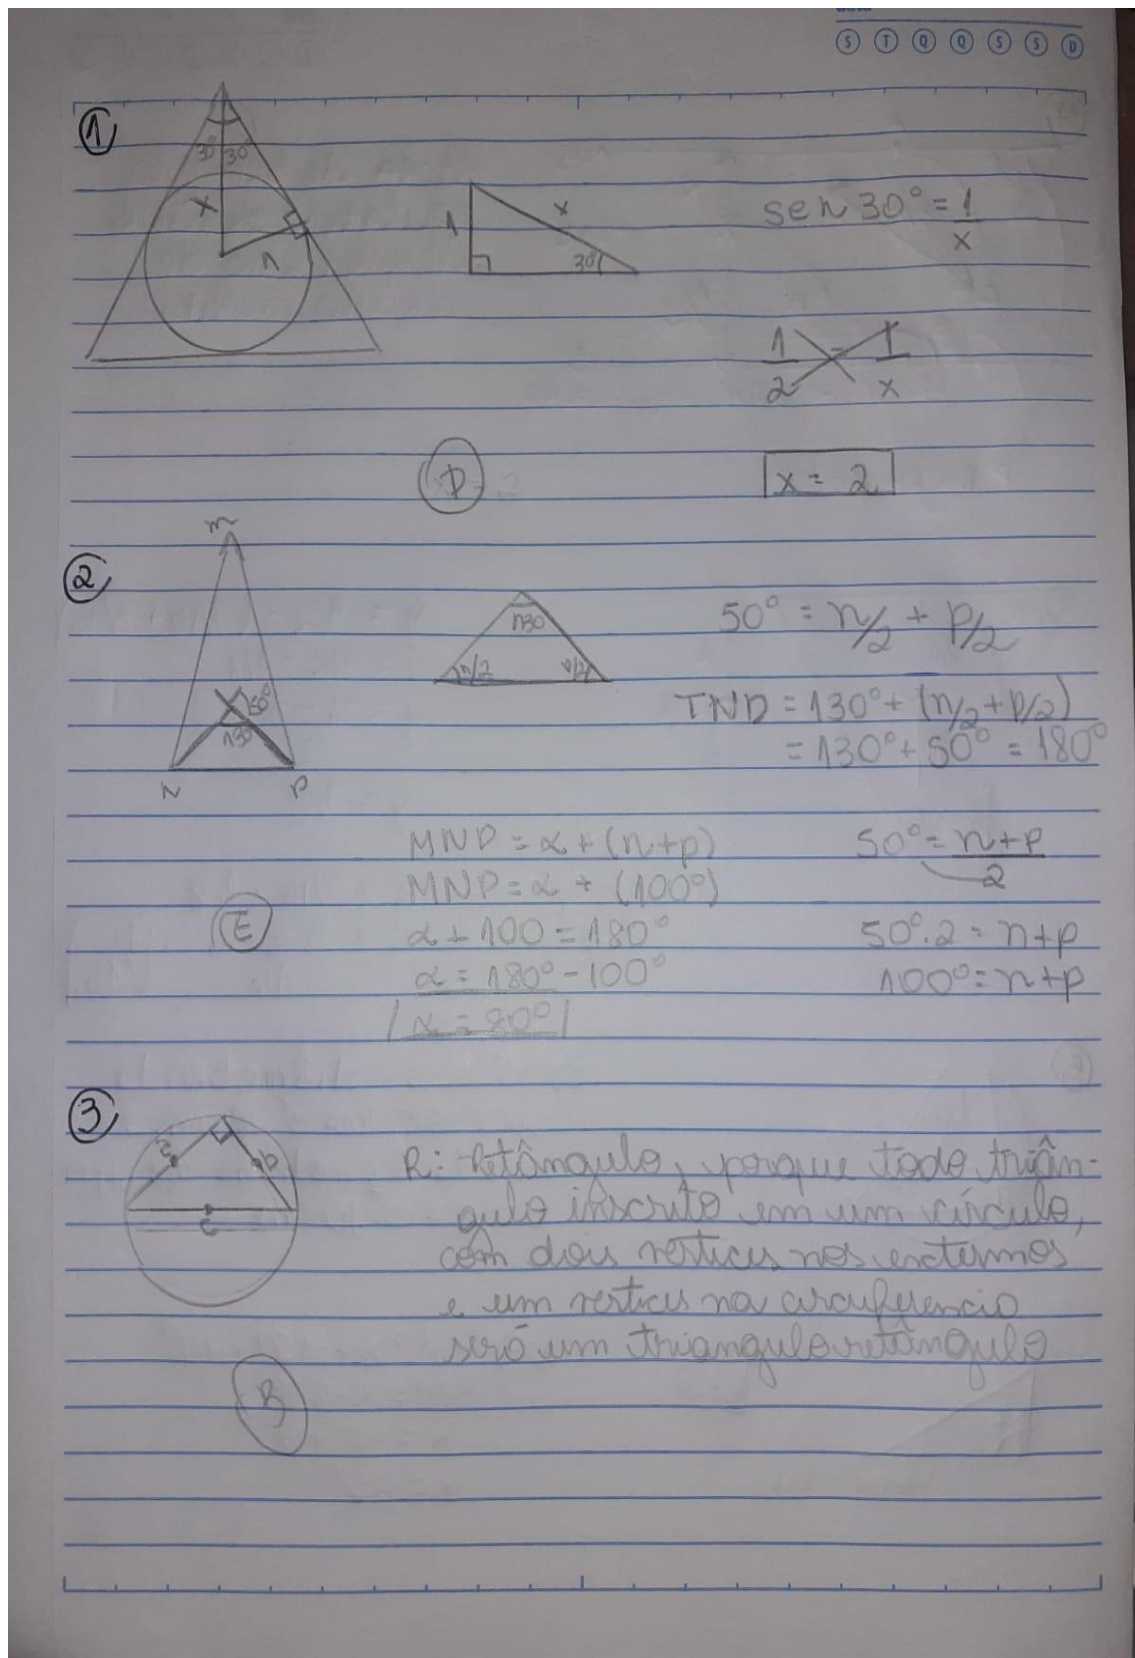 S T Q Q S S D
1
30° 30°
x
1
1 x
30°
sen 30° = 1/x
1/2 = 1/x
D
x = 2
2
M
50°
130°
N P
130
n/2 p/2
50° = n/2 + p/2
TND = 130° + (n/2 + p/2)
= 130° + 50° = 180°
MNP = α + (n+p)
MNP = α + (100°)
α + 100 = 180°
α = 180° - 100°
α = 80°
50° = n+p/2
50°.2 = n+p
100° = n+p
E
3
R: Retângulo, porque todo triân-
gulo inscrito em um círculo,
com dois vertices nos extremos
e um vertices na circuferencia
será um triangulo retângulo
B